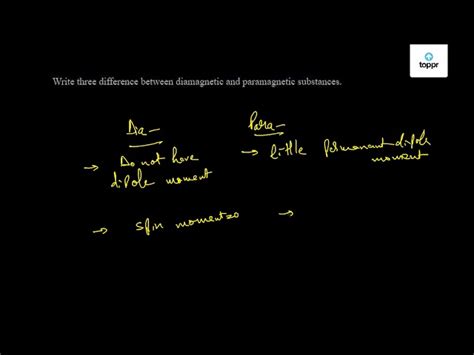 toppr
Write three difference between diamagnetic and paramagnetic substances.
Dia – Para –
→ Do not have → little permanant dipole
dipole moment moment
→ spin moment=0 →